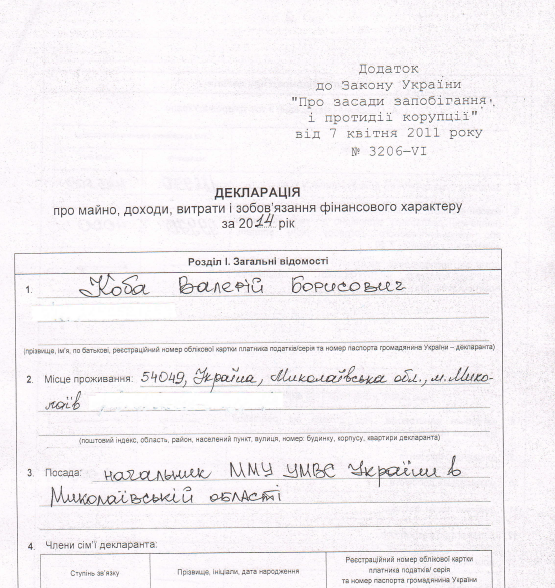 Додаток
до Закону України
"Про засади запобігання
і протидії корупції"
від 7 квітня 2011 року
№ 3206-VI
ДЕКЛАРАЦІЯ
про майно, доходи, витрати і зобов'язання фінансового характеру
за 2014 рік
Розділ I. Загальні відомості
1. Коба Валерій Борисович
(прізвище, ім'я, по батькові, реєстраційний номер облікової картки платника податків/серія та номер паспорта громадянина України – декларанта)
2. Місце проживання: 54049, Україна, Миколаївська обл., м. Мико-
лаїв
(поштовий індекс, область, район, населений пункт, вулиця, номер: будинку, корпусу, квартири декларанта)
3. Посада: начальник ММУ УМВС України в
Миколаївській області
4. Члени сім'ї декларанта:
Ступінь зв'язку
Прізвище, ініціали, дата народження
Реєстраційний номер облікової картки
платника податків/ серія
та номер паспорта громадянина України